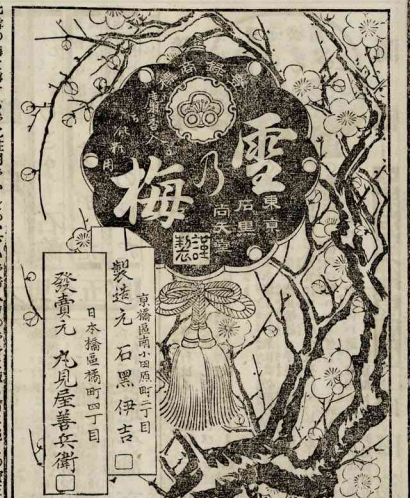 雪乃梅
東京
石黒
向天堂
謹製
京橋區南小田原町二丁目
製造元 石黒伊吉
日本橋區橘町四丁目
發賣元 丸見屋善兵衛